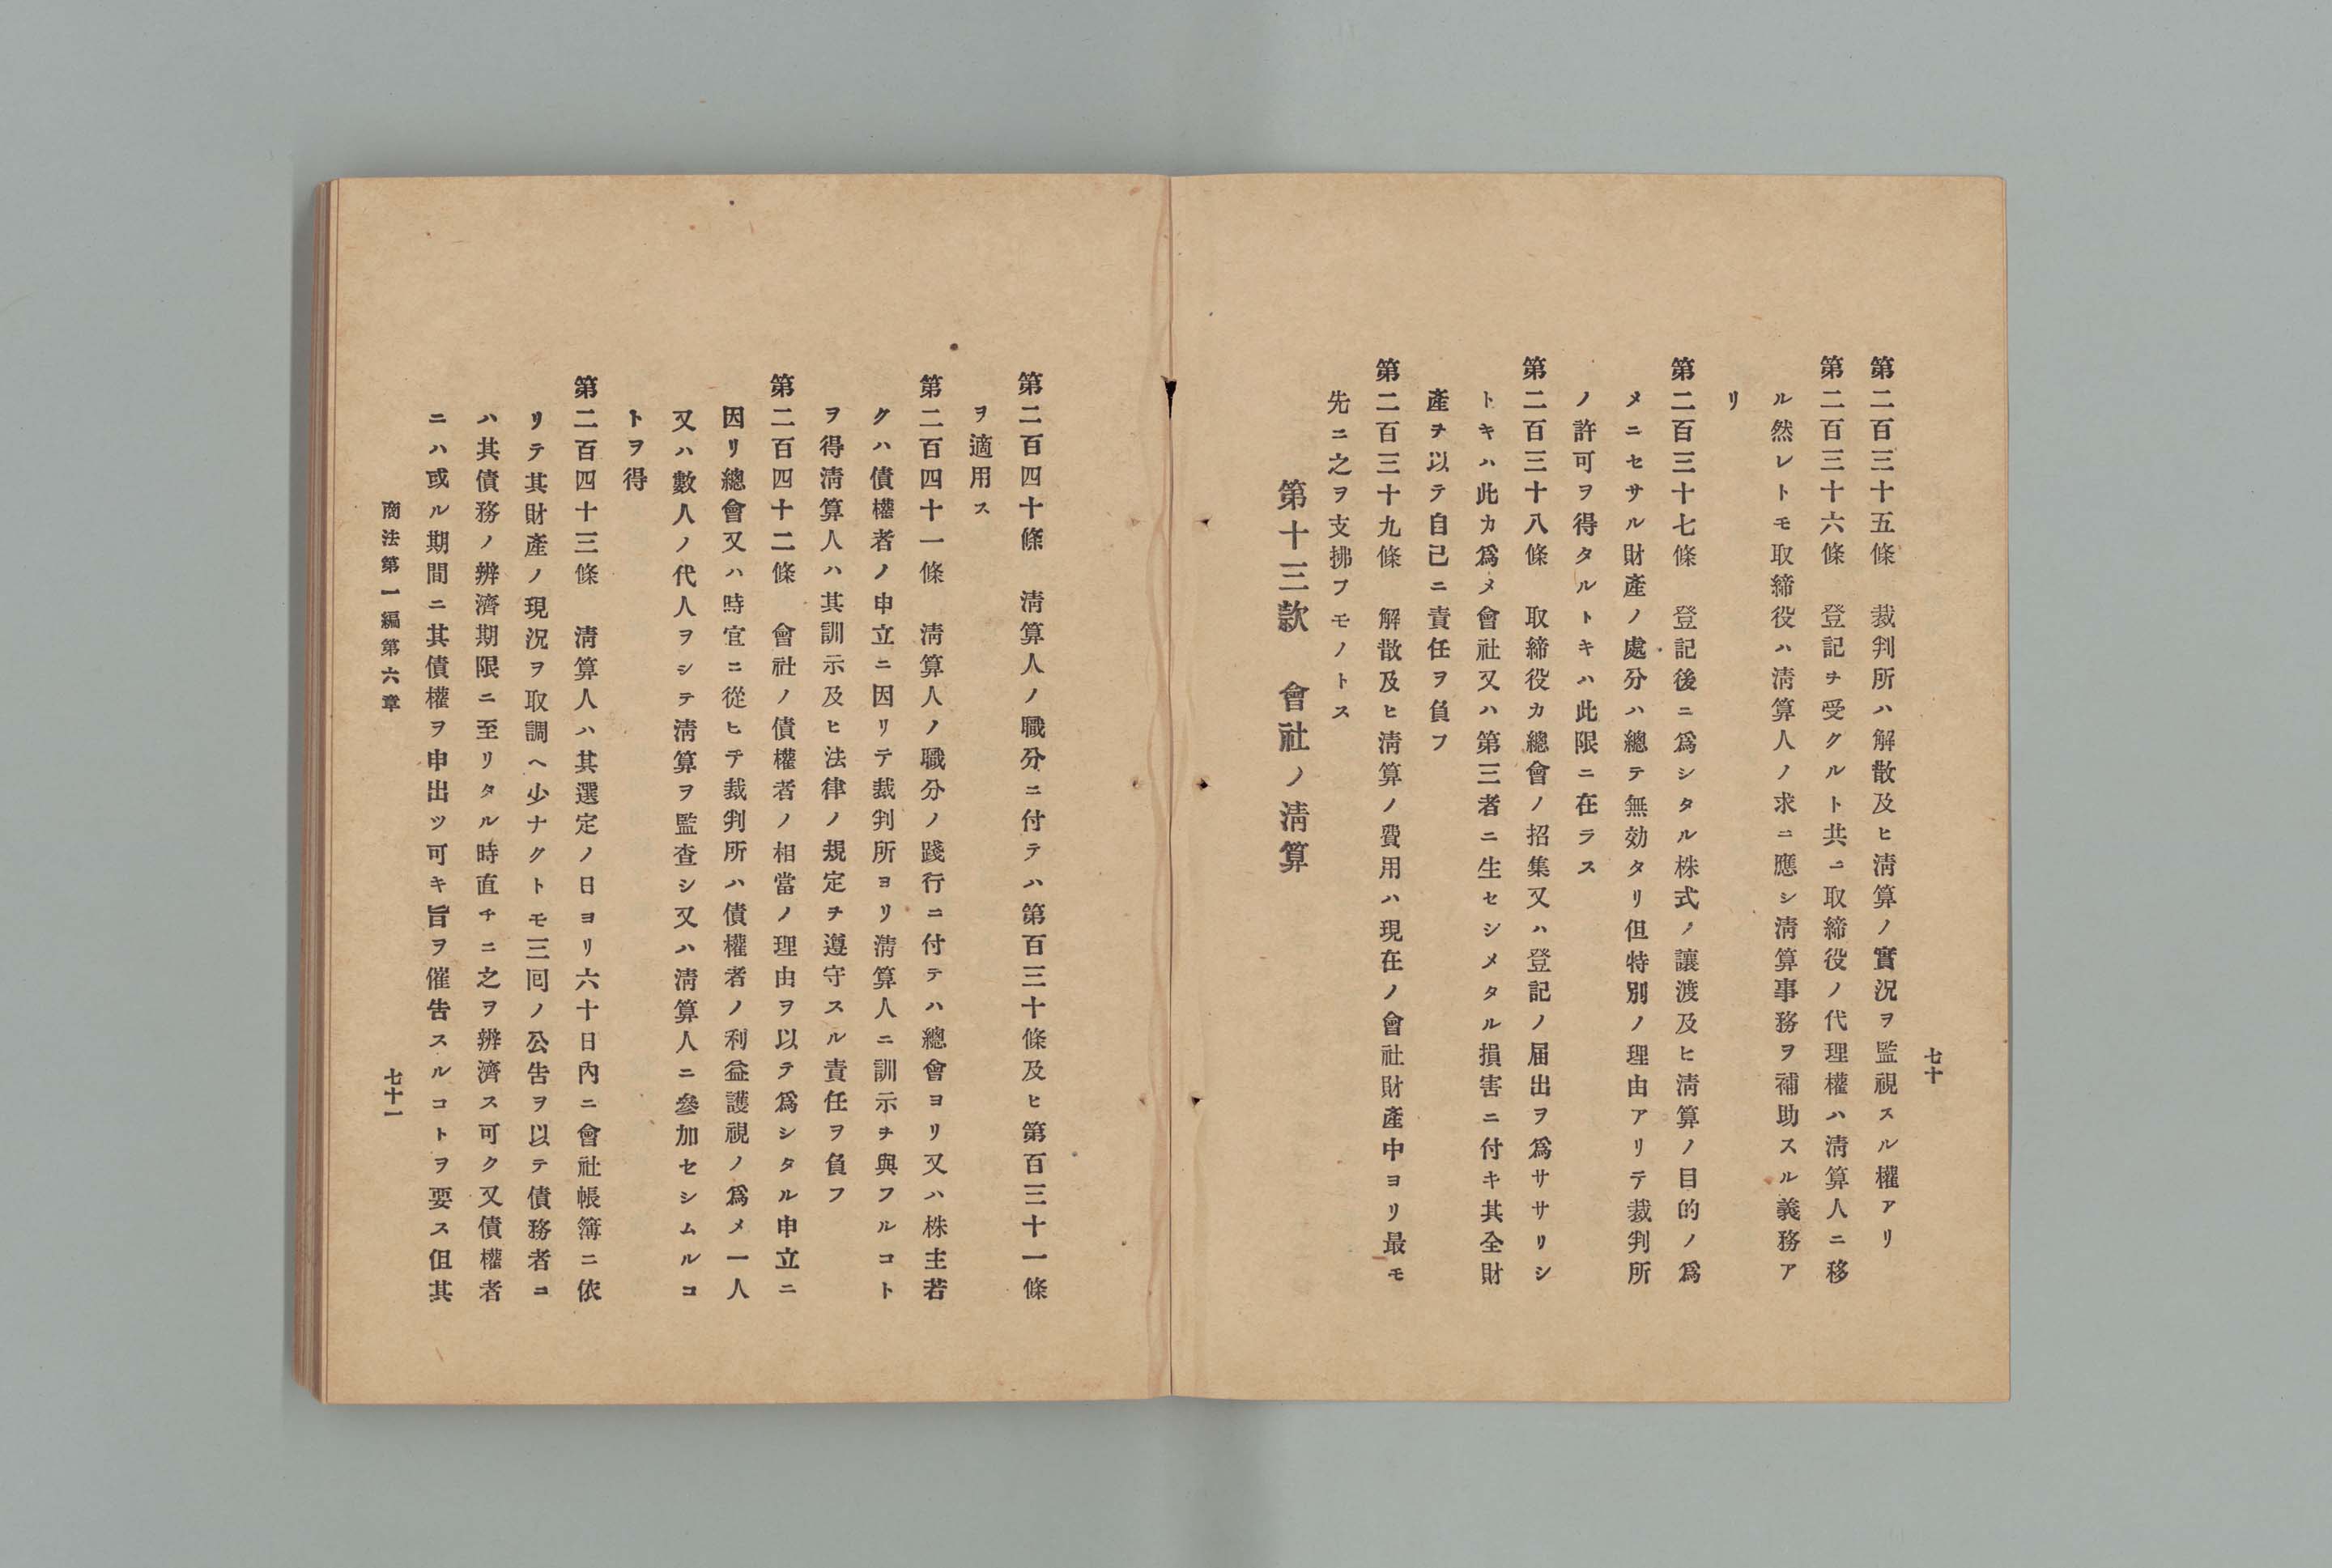 七十
第二百三十五條　裁判所ハ解散及ヒ淸算ノ實況ヲ監視スル權アリ
第二百三十六條　登記ヲ受クルト共ニ取締役ノ代理權ハ淸算人ニ移
ル然レトモ取締役ハ淸算人ノ求ニ應シ淸算事務ヲ補助スル義務ア
リ
第二百三十七條　登記後ニ爲シタル株式ノ讓渡及ヒ淸算ノ目的ノ爲
メニセサル財產ノ處分ハ總テ無効タリ但特別ノ理由アリテ裁判所
ノ許可ヲ得タルトキハ此限ニ在ラス
第二百三十八條　取締役カ總會ノ招集又ハ登記ノ届出ヲ爲ササリシ
トキハ此カ爲メ會社又ハ第三者ニ生セシメタル損害ニ付キ其全財
產ヲ以テ自己ニ責任ヲ負フ
第二百三十九條　解散及ヒ淸算ノ費用ハ現在ノ會社財產中ヨリ最モ
先ニ之ヲ支拂フモノトス
第十三款　會社ノ淸算
第二百四十條　淸算人ノ職分ニ付テハ第百三十條及ヒ第百三十一條
ヲ適用ス
第二百四十一條　淸算人ノ職分ノ踐行ニ付テハ總會ヨリ又ハ株主若
クハ債權者ノ申立ニ因リテ裁判所ヨリ淸算人ニ訓示ヲ與フルコト
ヲ得淸算人ハ其訓示及ヒ法律ノ規定ヲ遵守スル責任ヲ負フ
第二百四十二條　會社ノ債權者ノ相當ノ理由ヲ以テ爲シタル申立ニ
因リ總會又ハ時宜ニ從ヒテ裁判所ハ債權者ノ利益護視ノ爲メ一人
又ハ數人ノ代人ヲシテ淸算ヲ監査シ又ハ淸算人ニ參加セシムルコ
トヲ得
第二百四十三條　淸算人ハ其選定ノ日ヨリ六十日內ニ會社帳簿ニ依
リテ其財產ノ現況ヲ取調ヘ少ナクトモ三囘ノ公吿ヲ以テ債務者ニ
ハ其債務ノ辨濟期限ニ至リタル時直チニ之ヲ辨濟ス可ク又債權者
ニハ或ル期間ニ其債權ヲ申出ツ可キ旨ヲ催吿スルコトヲ要ス但其
商法第一編第六章
七十一